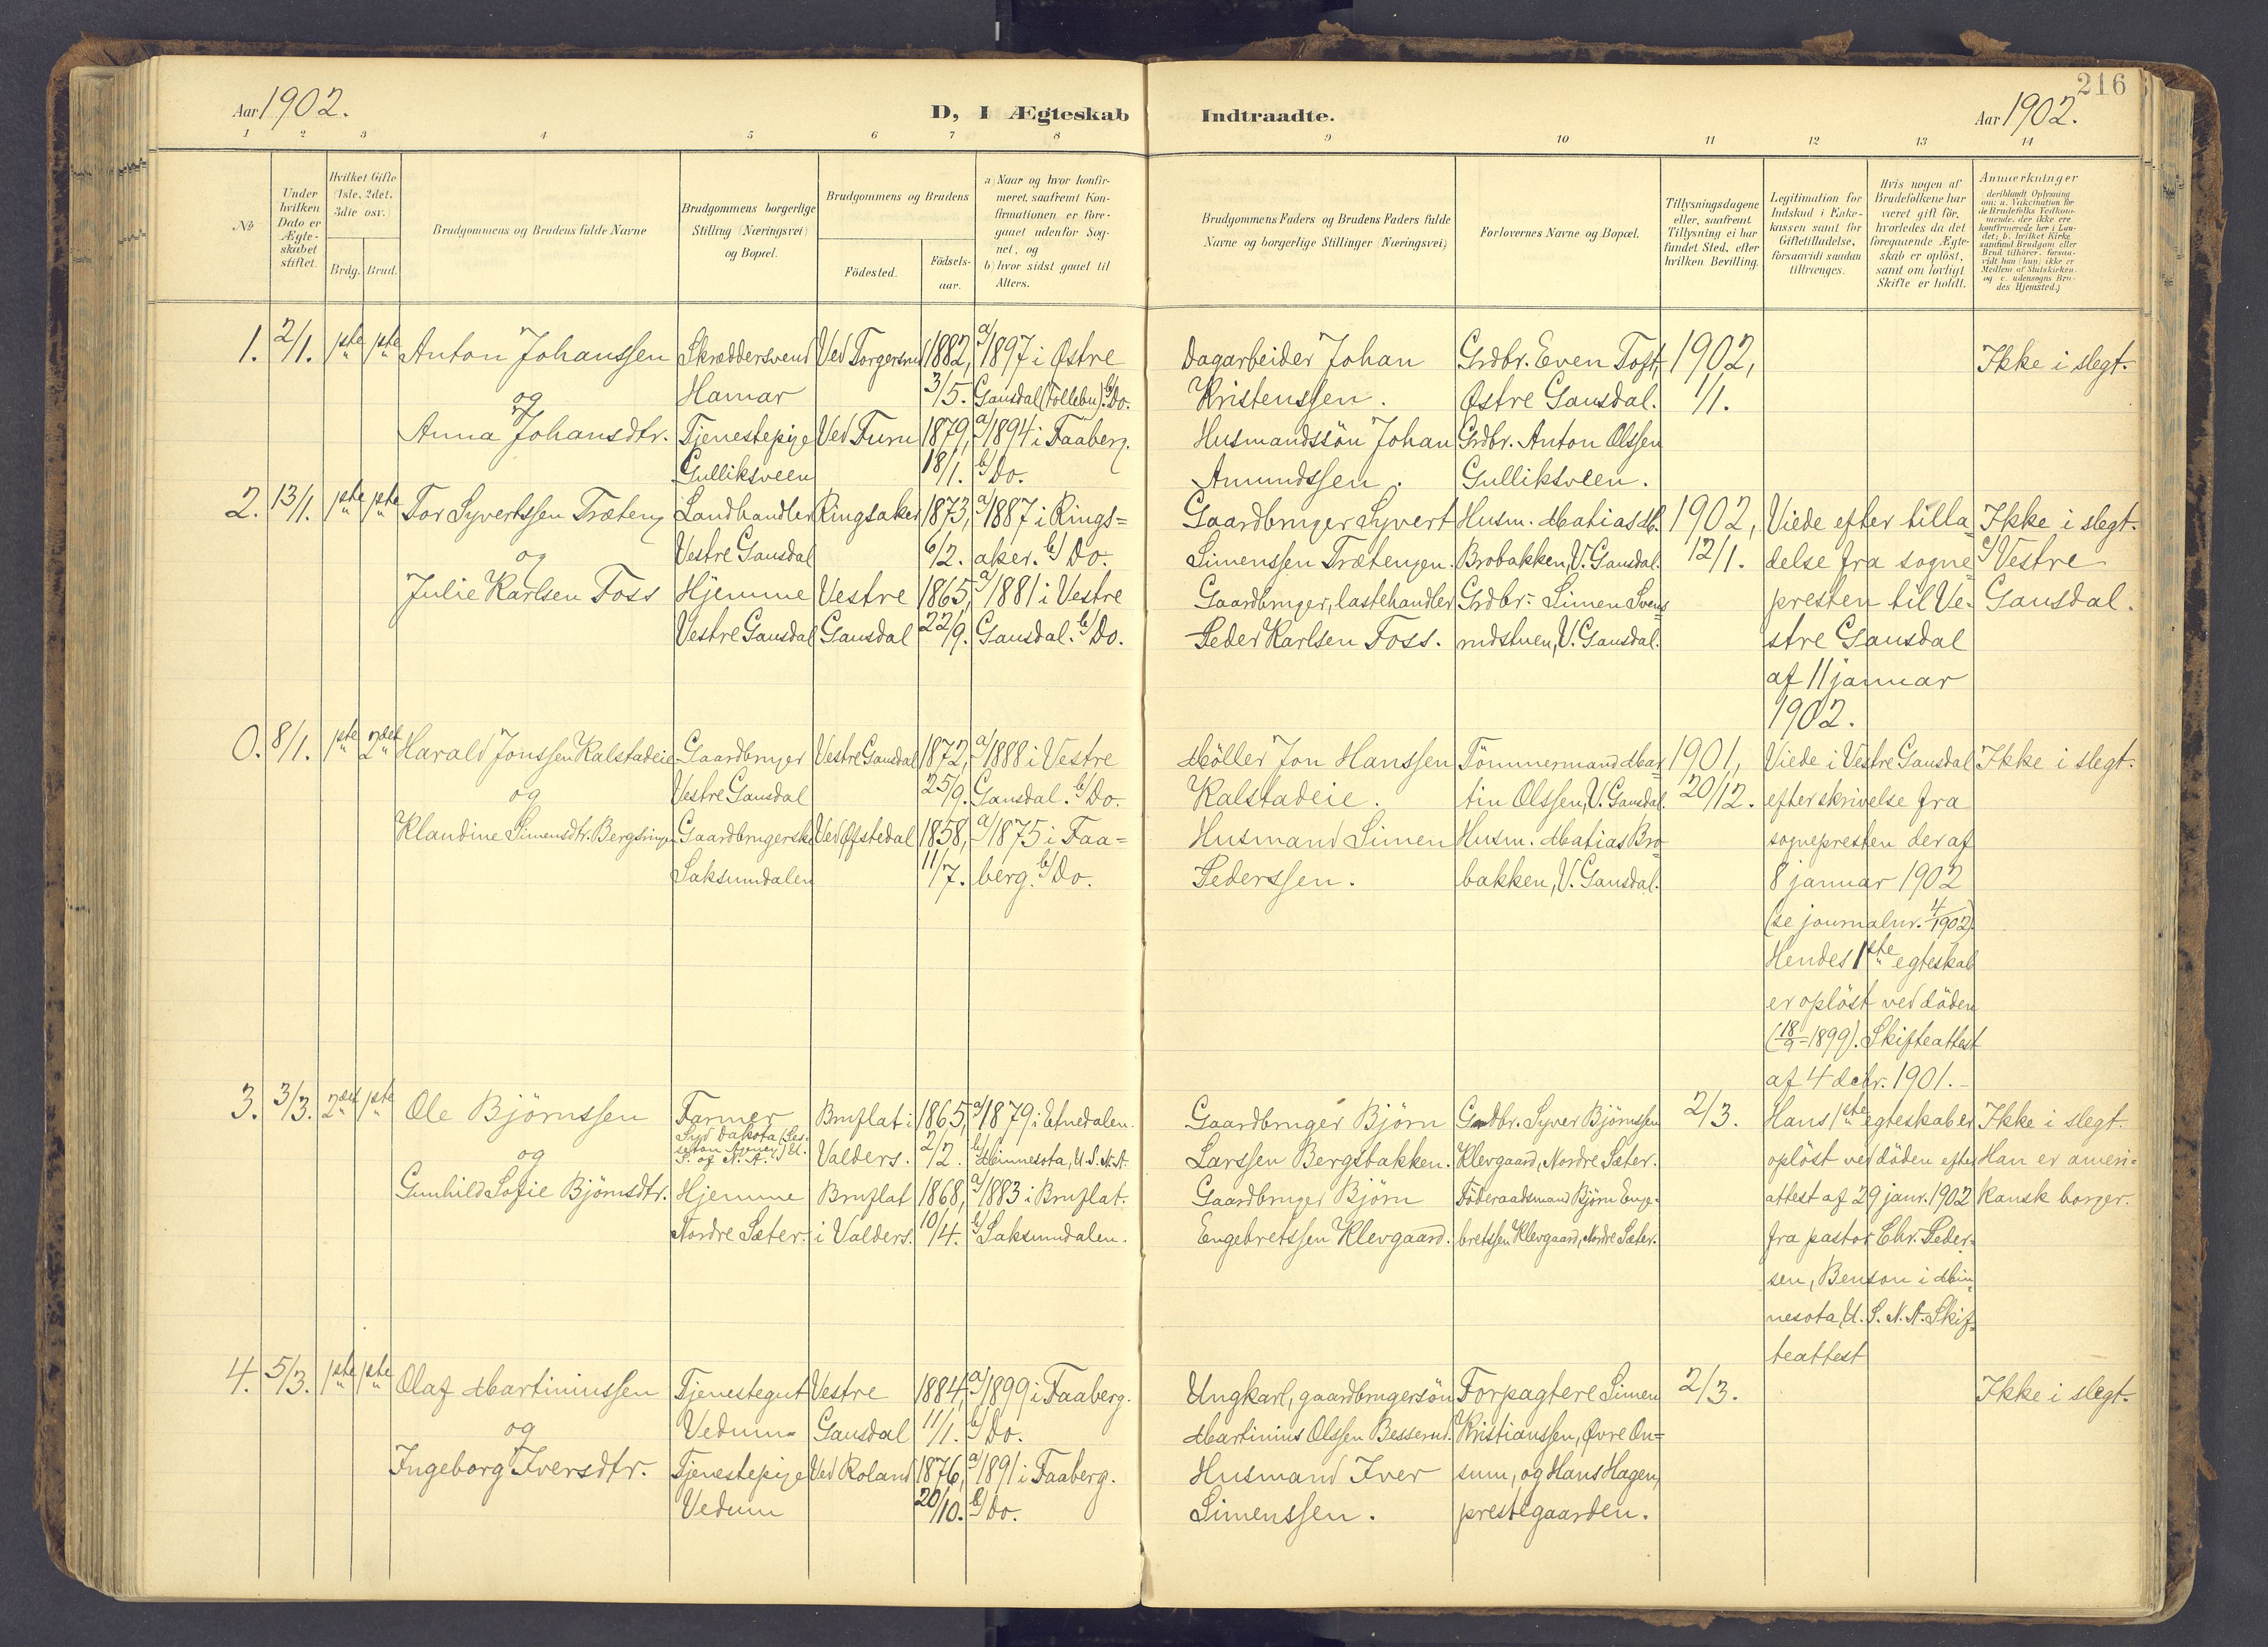 216
Aar 1902.
D, I Ægteskab
Indtraadte.
Aar 1902.
1 2 3 4 5 6 7 8 9 10 11 12 13 14
No
Under
hvilken
Dato er
Ægte-
skabet
stiftet.
Hvilket Gifte
(1ste, 2det,
3die osv.)
Brdg. Brud.
Brudgommens og Brudens fulde Navne
Brudgommens borgerlige
Stilling (Næringsvei)
og Bopæl.
Brudgommens og Brudens
Födested.
Födsels-
aar.
a) Naar og hvor konfir-
meret, saafremt Kon-
firmationen er fore-
gaaet udenfor Sog-
net, og
b) hvor sidst gaaet til
Alters.
Brudgommens Faders og Brudens Faders fulde
Navne og borgerlige Stillinger (Næringsvei)
Forlovernes Navne og Bopæl.
Tillysningsdagene
eller, saafremt
Tillysning ei har
fundet Sted, efter
hvilken Bevilling.
Legitimation for
Indskud i Enke-
kassen samt for
Giftetilladelse,
forsaavidt saadan
tiltrænges.
Hvis nogen af
Brudefolkene har
været gift før,
hvorledes da det
foregaaende Ægte-
skab er opløst,
samt om lovligt
Skifte er holdt.
Anmærkninger
(deriblandt Oplysning
om: a. Vakcination for
de Brudefolks Vedkom-
mende, der ikke ere
konfirmerede her i Lan-
det; b. hvilket Kirke-
samfund Brudgom eller
Brud tilhører, forsaa-
vidt han (hun) ikke er
Medlem af Statskirken,
og c. udensogns Bru-
des Hjemsted.)
1. 2/1. 1ste 1ste Anton Johanssen Skræddersvend Ved Torgersrud 1882, a/1897 i Østre Dagarbeider Johan Grdbr. Even Toft, 1902, Ikke i slegt.
og Hamar 3/5. Gausdal (Follebu). b/Do. Kristenssen. Østre Gausdal. 1/1.
Anna Johansdtr. Tjenestepige Ved Furu 1879, a/1894 i Faaberg. Husmandssön Johan Grdbr. Anton Olssen
Gulliksveen 18/1. b/Do. Amundssen. Gulliksveen.
2. 13/1. 1ste 1ste Tor Syvertssen Træteng Landhandler Ringsaker 1873, a/1887 i Rings= Gaardbruger Syvert Husm. Matias M. 1902, Viede efter tilla= Ikke i slegt.
og Vestre Gausdal 6/2. aker. b/Do. Simenssen Trætengen. Brobakken, V. Gausdal. 12/1. delse fra sogne= c/Vestre
Julie Karlsen Foss Hjemme Vestre 1865, a/1881 i Vestre Gaardbruger, lastehandler Grdbr. Simen Svens= presten til Ve- Gausdal.
Vestre Gausdal Gausdal 22/9. Gausdal. b/Do. Peder Karlsen Foss. rudstuen, V. Gausdal. stre Gausdal
af 11 januar
1902.
0. 8/1. 1ste 2det Harald Jonssen Kalstadeie Gaardbruger Vestre Gausdal 1872, a/1888 i Vestre Möller Jon Hanssen Tömmermand Mar= 1901, Viede i Vestre Gausdal Ikke i slegt.
og Vestre Gausdal 25/9. Gausdal. b/Do. Kalstadeie. tin Olssen, V. Gausdal. 20/12. efter skrivelse fra
Klaudine Simensdtr. Bergsringen Gaardbrugerske Ved Öfstedal 1858, a/1875 i Faa= Husmand Simen Husm. Matias Bro= sognepresten der af
Saksumdalen 11/7. berg. b/Do. Pederssen. bakken, V. Gausdal. 8 januar 1902
(se journalnr. 4/1902).
Hendes 1ste egteskab
er oplöst ved döden
(18/9 1899). Skifteattest
af 4 decbr. 1901.
3. 3/3. 2det 1ste Ole Björnssen Farmer Bruflat i 1865, a/1879 i Etnedalen. Gaardbruger Björn Grdbr. Syver Björnssen 2/3. Hans 1ste egteskab er Ikke i slegt.
Syd Dakota (Ses-
seton Agency) U.
og S. of N. A. Valders. 2/2. b/Minnesota, U. S. N. A. Larssen Bergsbakken. Klevgaard, Nordre Sæter. oplöst ved döden efter Han er ameri-
Gunhild Sofie Björnsdtr. Hjemme Bruflat 1868, a/1883 i Bruflat. Gaardbruger Björn Föderaadsmand Björn Enge- attest af 29 janr. 1902 kansk borger.
Nordre Sæter. i Valders. 10/4. b/Saksumdalen. Engebretssen Klevgaard. bretssen Klevgaard, Nordre Sæter. fra pastor Chr. Peder-
sen, Benson i Min=
nesota, U. S. N. A. Skif=
teattest
4. 5/3. 1ste 1ste Olaf Martiniussen Tjenestegut Vestre 1884, a/1899 i Faaberg. Ungkarl, gaardbrugersön Forpagtere Simen 2/3. Ikke i slegt.
og Vedum Gausdal 11/1. b/Do. Martinius Olssen Besserud. Kristianssen, Øvre On=
Ingeborg Iversdtr. Tjenestepige Ved Roland 1876, a/1891 i Faaberg. Husmand Iver sum, og Hans Hagen,
Vedum 20/10. b/Do. Simenssen. prestegaarden.